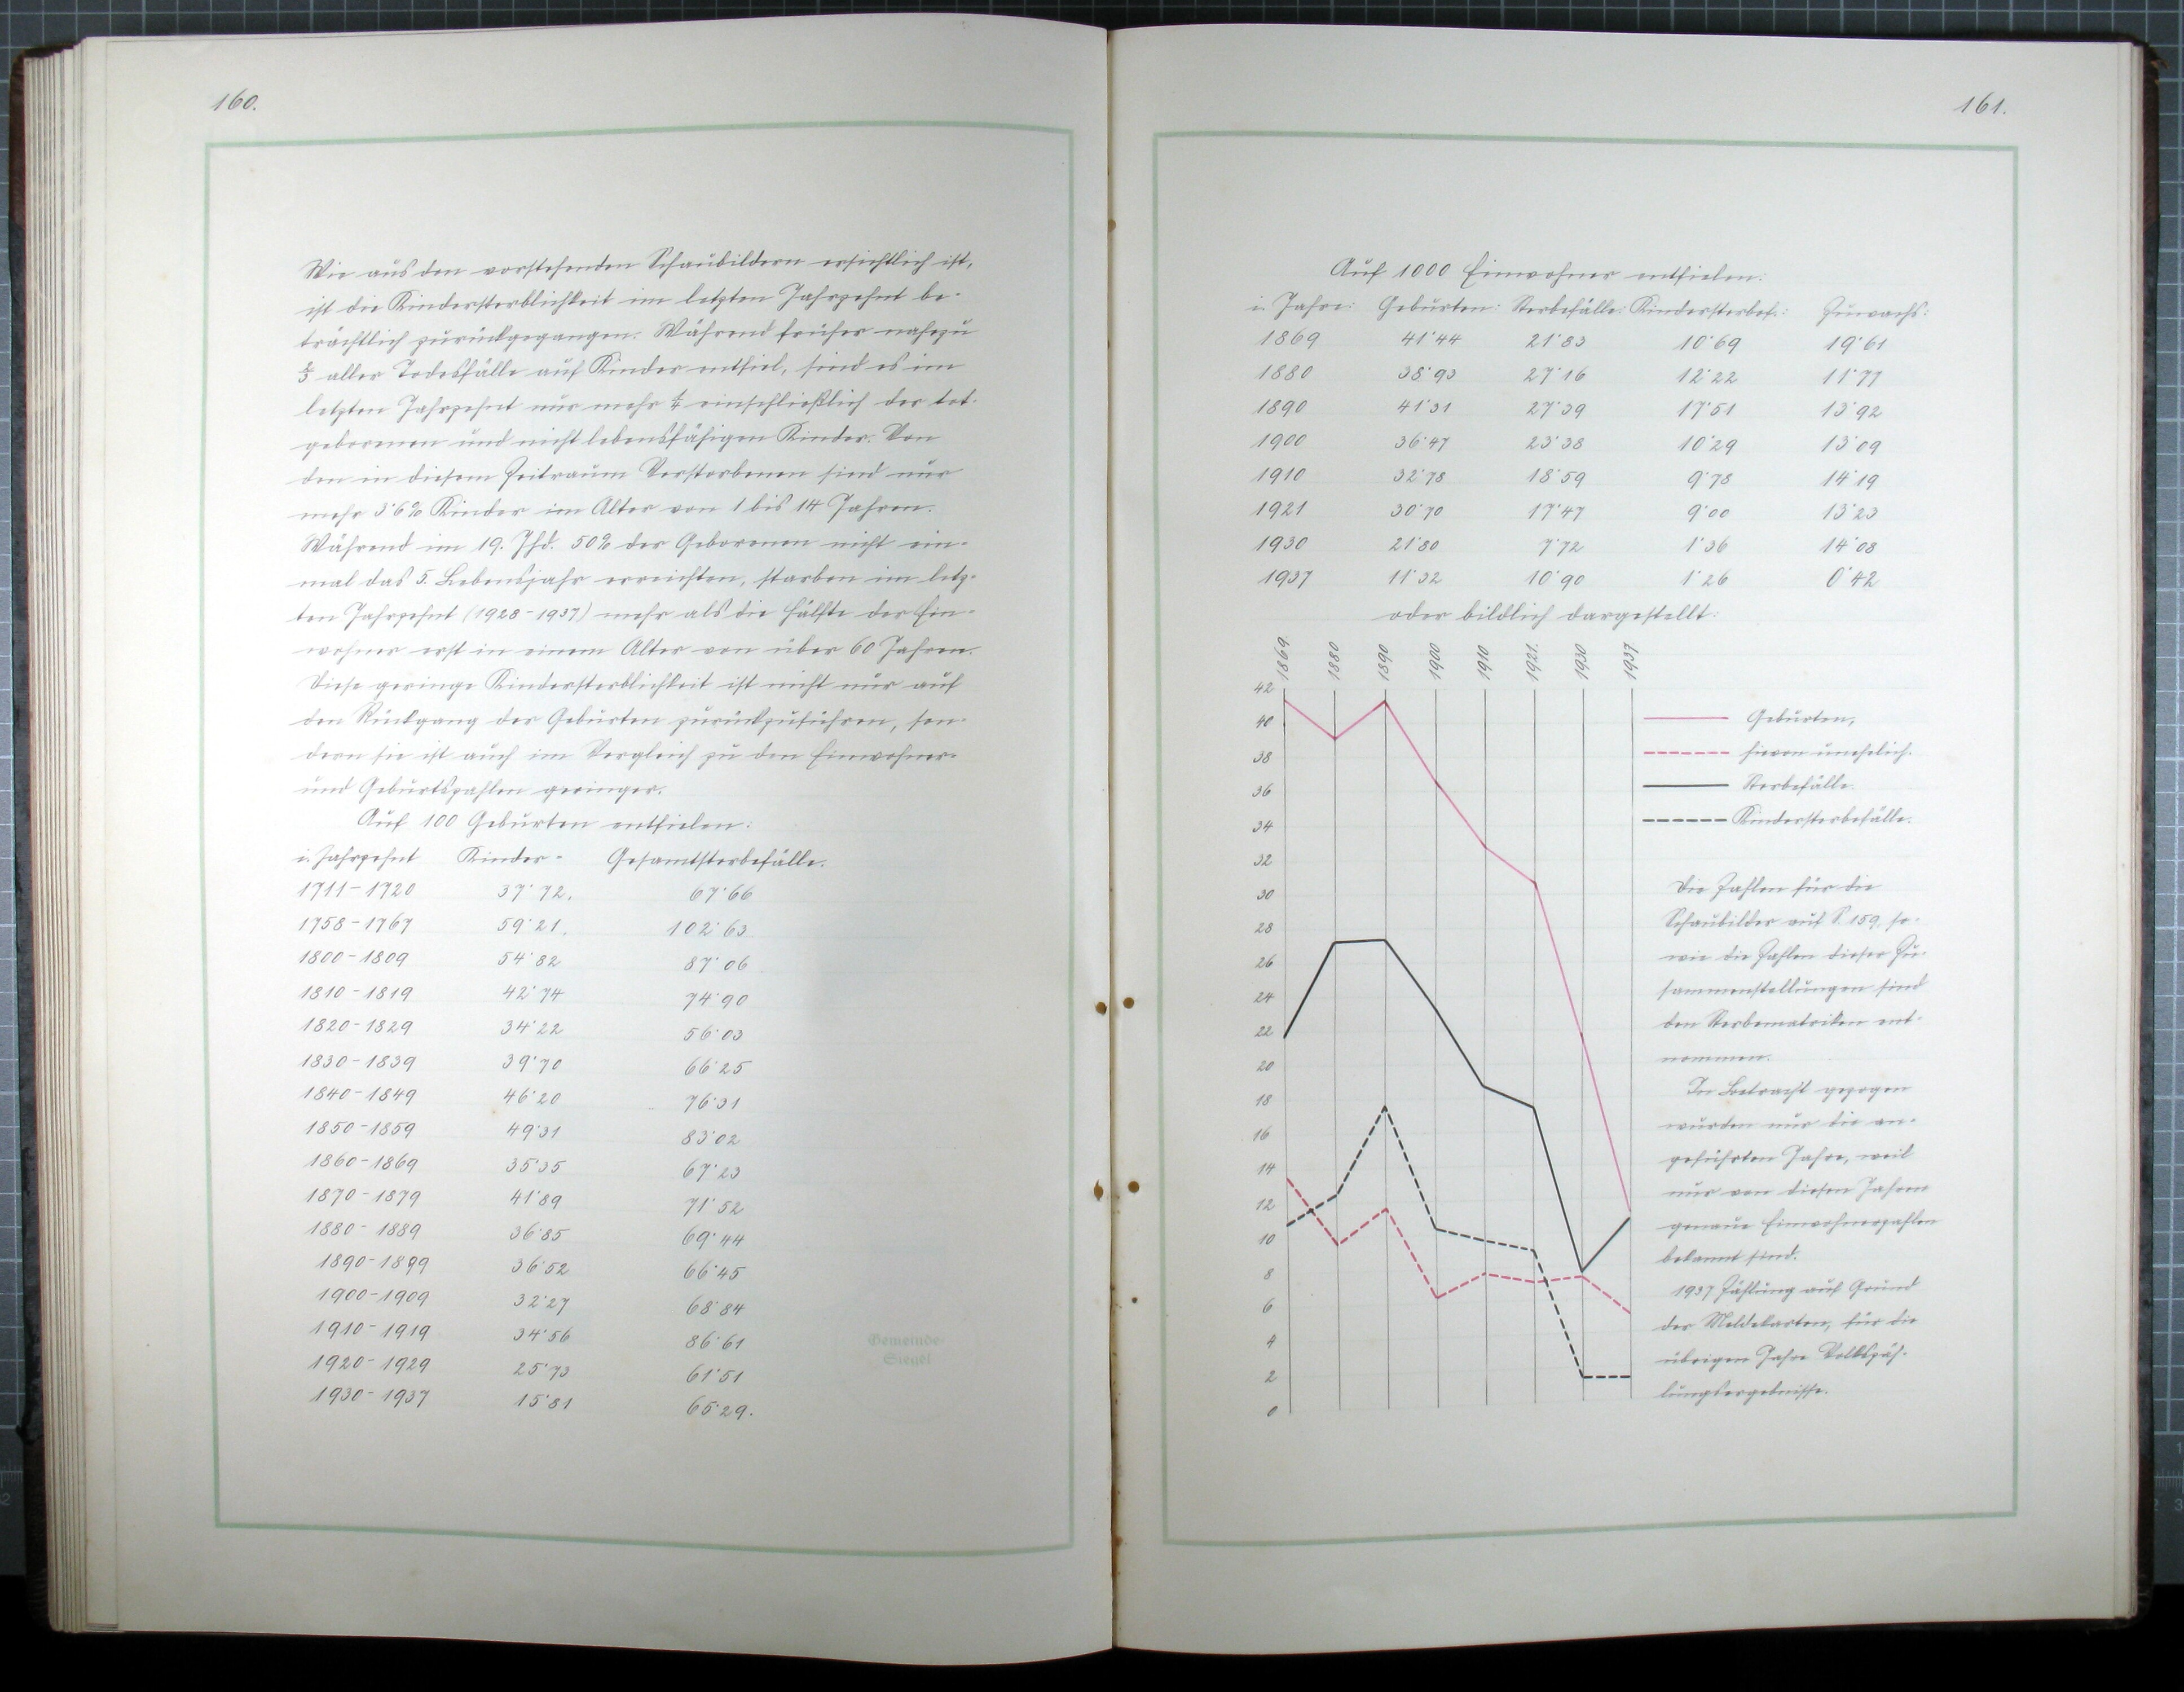 160.
Wie aus den vorstehenden Schaubildern ersichtlich ist,
ist die Kindersterblichkeit im letzten Jahrzehnt be-
trächtlich zurückgegangen. Während früher nahezu
aller Todesfälle auf Kinder entfiel, sind es im
letzten Jahrzehnt nur mehr einschließlich der tot-
geborenen und nicht lebensfähigen Kinder. Von
den in diesem Zeitraum Verstorbenen sind nur
mehr 3'6% Kinder im Alter von 1 bis 14 Jahren.
Während im 19. Jhd. 50% der Geborenen nicht ein-
mal das 5. Lebensjahr erreichten, starben im letz-
ten Jahrzehnt (1928-1937) mehr als die Hälfte der Ein-
wohner erst in einem Alter von über 60 Jahren.
Diese geringe Kindersterblichkeit ist nicht nur auf
den Rückgang der Geburten zurückzuführen, son-
dern sie ist auch im Vergleich zu den Einwohner-
und Geburtszahlen geringer.
Auf 100 Geburten entfielen:
i. Jahrzehnt Kinder- Gesamtsterbefälle.
1711-1720 37'72. 67'66
1758-1767 59'21. 102'63
1800-1809 54'82 87'06
1810-1819 42'74 74'90
1820-1829 34'22 56'03
1830-1839 39'70 66'25
1840-1849 46'20 76'31
1850-1859 49'31 83'02
1860-1869 35'35 67'23
1870-1879 41'89 71'52
1880-1889 36'85 69'44
1890-1899 36'52 66'45
1900-1909 32'27 68'84
1910-1919 34'56 86'61
1920-1929 25'73 61'51
1930-1937 15'81 65'29.
Gemeinde-
161.
Auf 1000 Einwohner entfielen:
i. Jahre: Geburten: Sterbefälle: Kindersterbef.: Zuwachs:
1869 41'44 21'83 10'69 19'61
1880 38'93 27'16 12'22 11'77
1890 41'31 27'39 17'51 13'92
1900 36'47 23'38 10'29 13'09
1910 32'78 18'59 9'78 14'19
1921 30'70 17'47 9'00 13'23
1930 21'80 7'72 1'36 14'08
1937 11'32 10'90 1'26 0'42
oder bildlich dargestellt:
1869 1880 1890 1900 1910 1921. 1930 1937
42
40
38
36
34
32
30
28
26
24
22
20
18
16
14
12
10
8
6
4
2
0
Geburten,
hievon unehelich.
Sterbefälle.
Kindersterbefälle.
Die Zahlen für die
Schaubilder auf S. 159, so-
wie die Zahlen dieser Zu-
sammenstellungen sind
den Sterbematriken ent-
nommen.
In Betracht gezogen
wurden nur die an-
geführten Jahre, weil
nur von diesen Jahren
genaue Einwohnerzahlen
bekannt sind.
1937 Zählung auf Grund
der Meldekarten, für die
übrigen Jahre Volkszäh-
lungsergebnisse.